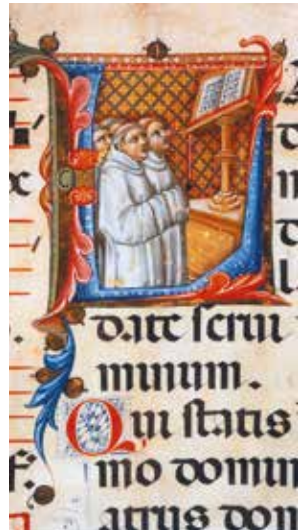 L
date serui
minum.
Qui statis
mo domin
atrus dom